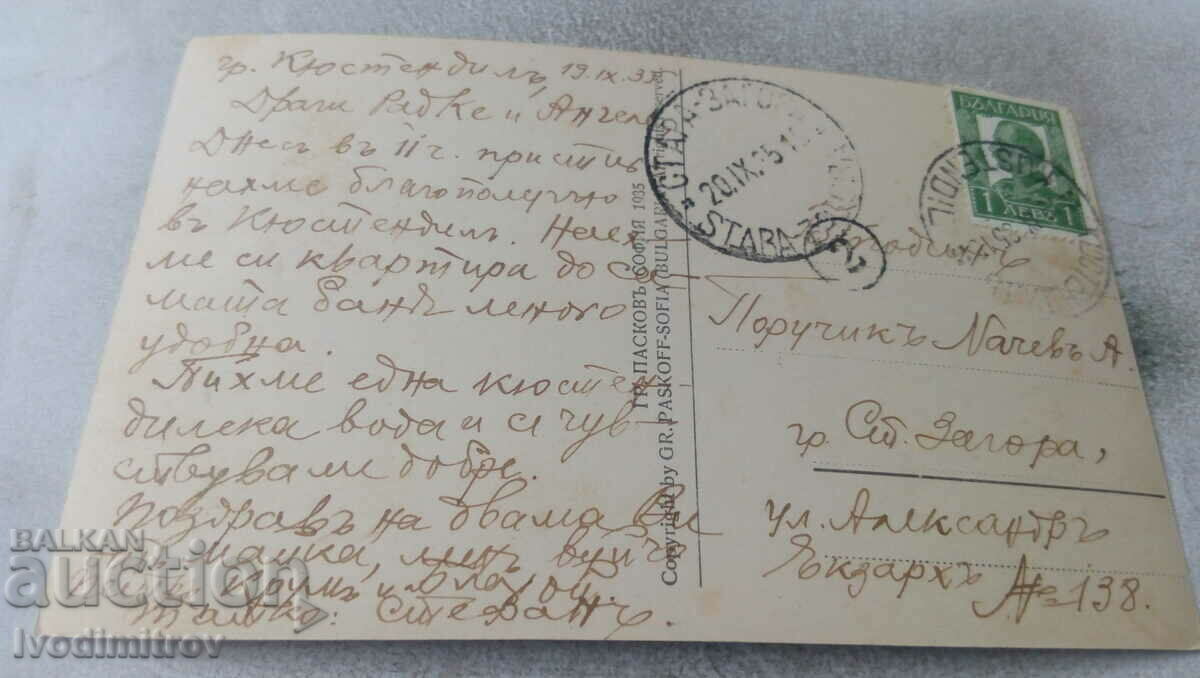 гр. Кюстендилъ, 19.IX.35
Драги Радке и Ангеле
Днесъ въ 11 ч. пристиг
нахме благополучно
въ Кюстендилъ. Наех-
ме си квартира до са-
мата баня много
удобна.
Пихме една кюстен
дилска вода и се чув-
ствуваме добре.
Поздравъ на двама Ви
отъ майка, вуйчо
Крумъ и
татко: Стефанъ.
ГР. ПАСКОВЪ-СОФИЯ 1935
Copyright by GR. PASKOFF-SOFIA (BULGARY)
СТАРА-ЗАГОРА
20.IX.35.1
STARA-ZAG
БЪЛГАРИЯ
1 ЛЕВЪ 1
KUSTENDIL
Господинъ
Поручикъ Начевъ А.
гр. Ст. Загора,
ул. Александръ
Екзархъ № 138.
BALKAN
auction
Ivodimitrov